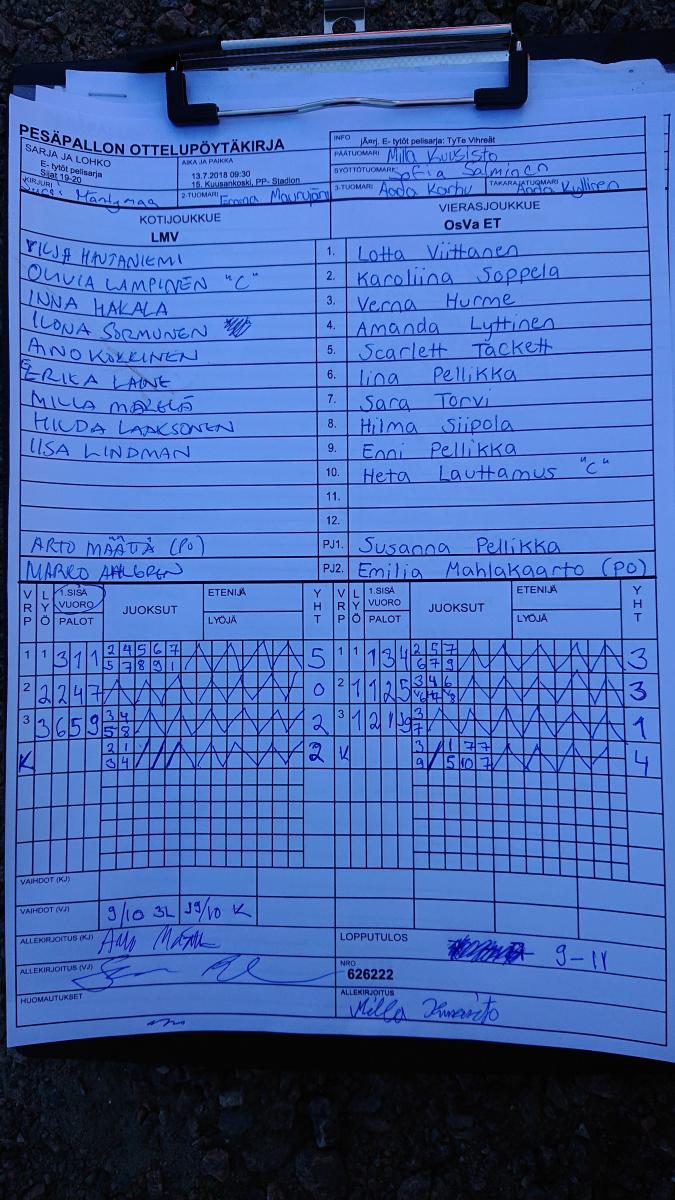 PESÄPALLON OTTELUPÖYTÄKIRJA
INFO jÄrrj. E- tytöt pelisarja: TyTe Vihreät
SARJA JA LOHKO
E- tytöt pelisarja
Sijat 19-20
AIKA JA PAIKKA
13.7.2018 09:30
15. Kuusankoski, PP- Stadion
PÄÄTUOMARI Milla Kuusisto
SYÖTTÖTUOMARI Sofia Salminen
KIRJURI
2-TUOMARI Emma
3-TUOMARI Aada Korhu
TAKARAJATUOMARI Aada Kyllinen
KOTIJOUKKUE
LMV
VIERASJOUKKUE
OsVa ET
VILJA HAUTANIEMI 1. Lotta Viittanen
OLIVIA LAMPINEN "C" 2. Karoliina Soppela
INNA HAKALA 3. Verna Hurme
ILONA SORMUNEN 4. Amanda Lyttinen
AINO KOKKINEN 5. Scarlett Tackett
ERIKA LAINE 6. Iina Pellikka
MILLA MÄKELÄ 7. Sara Torvi
HILDA LAAKSONEN 8. Hilma Siipola
IISA LINDMAN 9. Enni Pellikka
10. Heta Lauttamus "C"
11.
12.
ARTO MÄÄTTÄ (PO) PJ1. Susanna Pellikka
MARKO AHLGREN PJ2. Emilia Mahlakaarto (PO)
VRP LYÖ 1.SISÄ VUORO PALOT JUOKSUT ETENIJÄ LYÖJÄ YHT VRP LYÖ 1.SISÄ VUORO PALOT JUOKSUT ETENIJÄ LYÖJÄ YHT
1 1 3 1 1 2 4 5 6 7 5 1 1 1 3 4 2 5 7 3
5 7 8 9 1 6 7 9
2 2 2 4 7 0 2 1 1 2 5 3 4 6 3
3 3 6 5 9 3 4 2 3 1 2 1 3 1
5 8 7
K 2 1 2 K 3 1 7 7 4
3 4 9 5 10 7
VAIHDOT (KJ)
VAIHDOT (VJ) 9/10 3L 19/10 K
ALLEKIRJOITUS (KJ)
LOPPUTULOS 9-11
ALLEKIRJOITUS (VJ)
NRO
626222
HUOMAUTUKSET
ALLEKIRJOITUS Milla Kuusisto